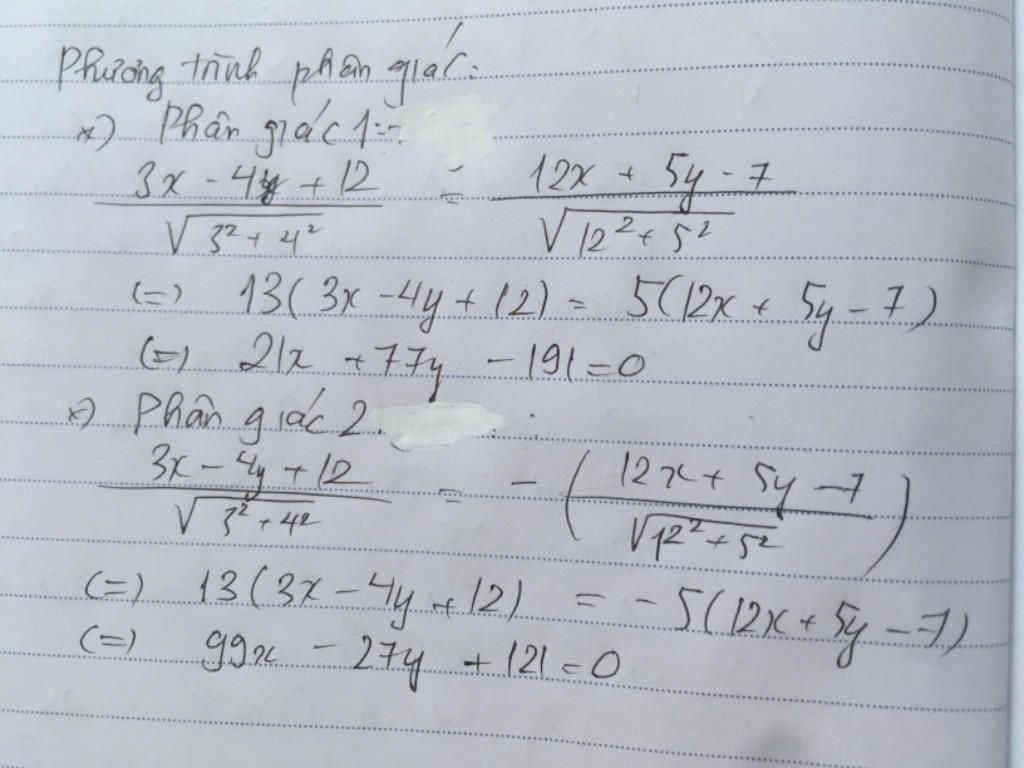 Phương trình phân giác:
*) Phân giác 1:
(3x - 4y + 12)/√(3² + 4²) = (12x + 5y - 7)/√(12² + 5²)
(=) 13(3x - 4y + 12) = 5(12x + 5y - 7)
(=) 21x + 77y - 191 = 0
*) Phân giác 2 :
(3x - 4y + 12)/√(3² + 4²) = - ((12x + 5y - 7)/√(12² + 5²))
(=) 13(3x - 4y + 12) = - 5(12x + 5y - 7)
(=) 99x - 27y + 121 = 0